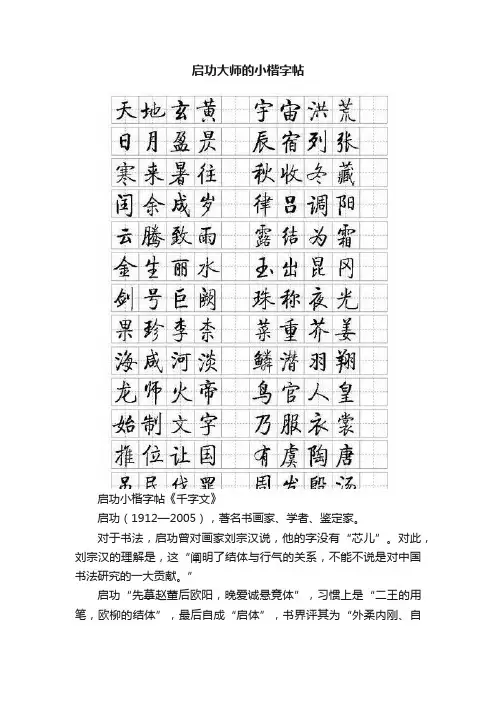 启功大师的小楷字帖
天地玄黄 宇宙洪荒
日月盈昃 辰宿列张
寒来暑往 秋收冬藏
闰余成岁 律吕调阳
云腾致雨 露结为霜
金生丽水 玉出昆冈
剑号巨阙 珠称夜光
果珍李柰 菜重芥姜
海咸河淡 鳞潜羽翔
龙师火帝 鸟官人皇
始制文字 乃服衣裳
推位让国 有虞陶唐
吊民伐罪 周发殷汤
启功小楷字帖《千字文》
启功（1912—2005），著名书画家、学者、鉴定家。
对于书法，启功曾对画家刘宗汉说，他的字没有“芯儿”。对此，
刘宗汉的理解是，这“阐明了结体与行气的关系，不能不说是对中国
书法研究的一大贡献。”
启功“先摹赵董后欧阳，晚爱诚悬竟体”，习惯上是“二王的用
笔，欧柳的结体”，最后自成“启体”，书界评其为“外柔内刚、自